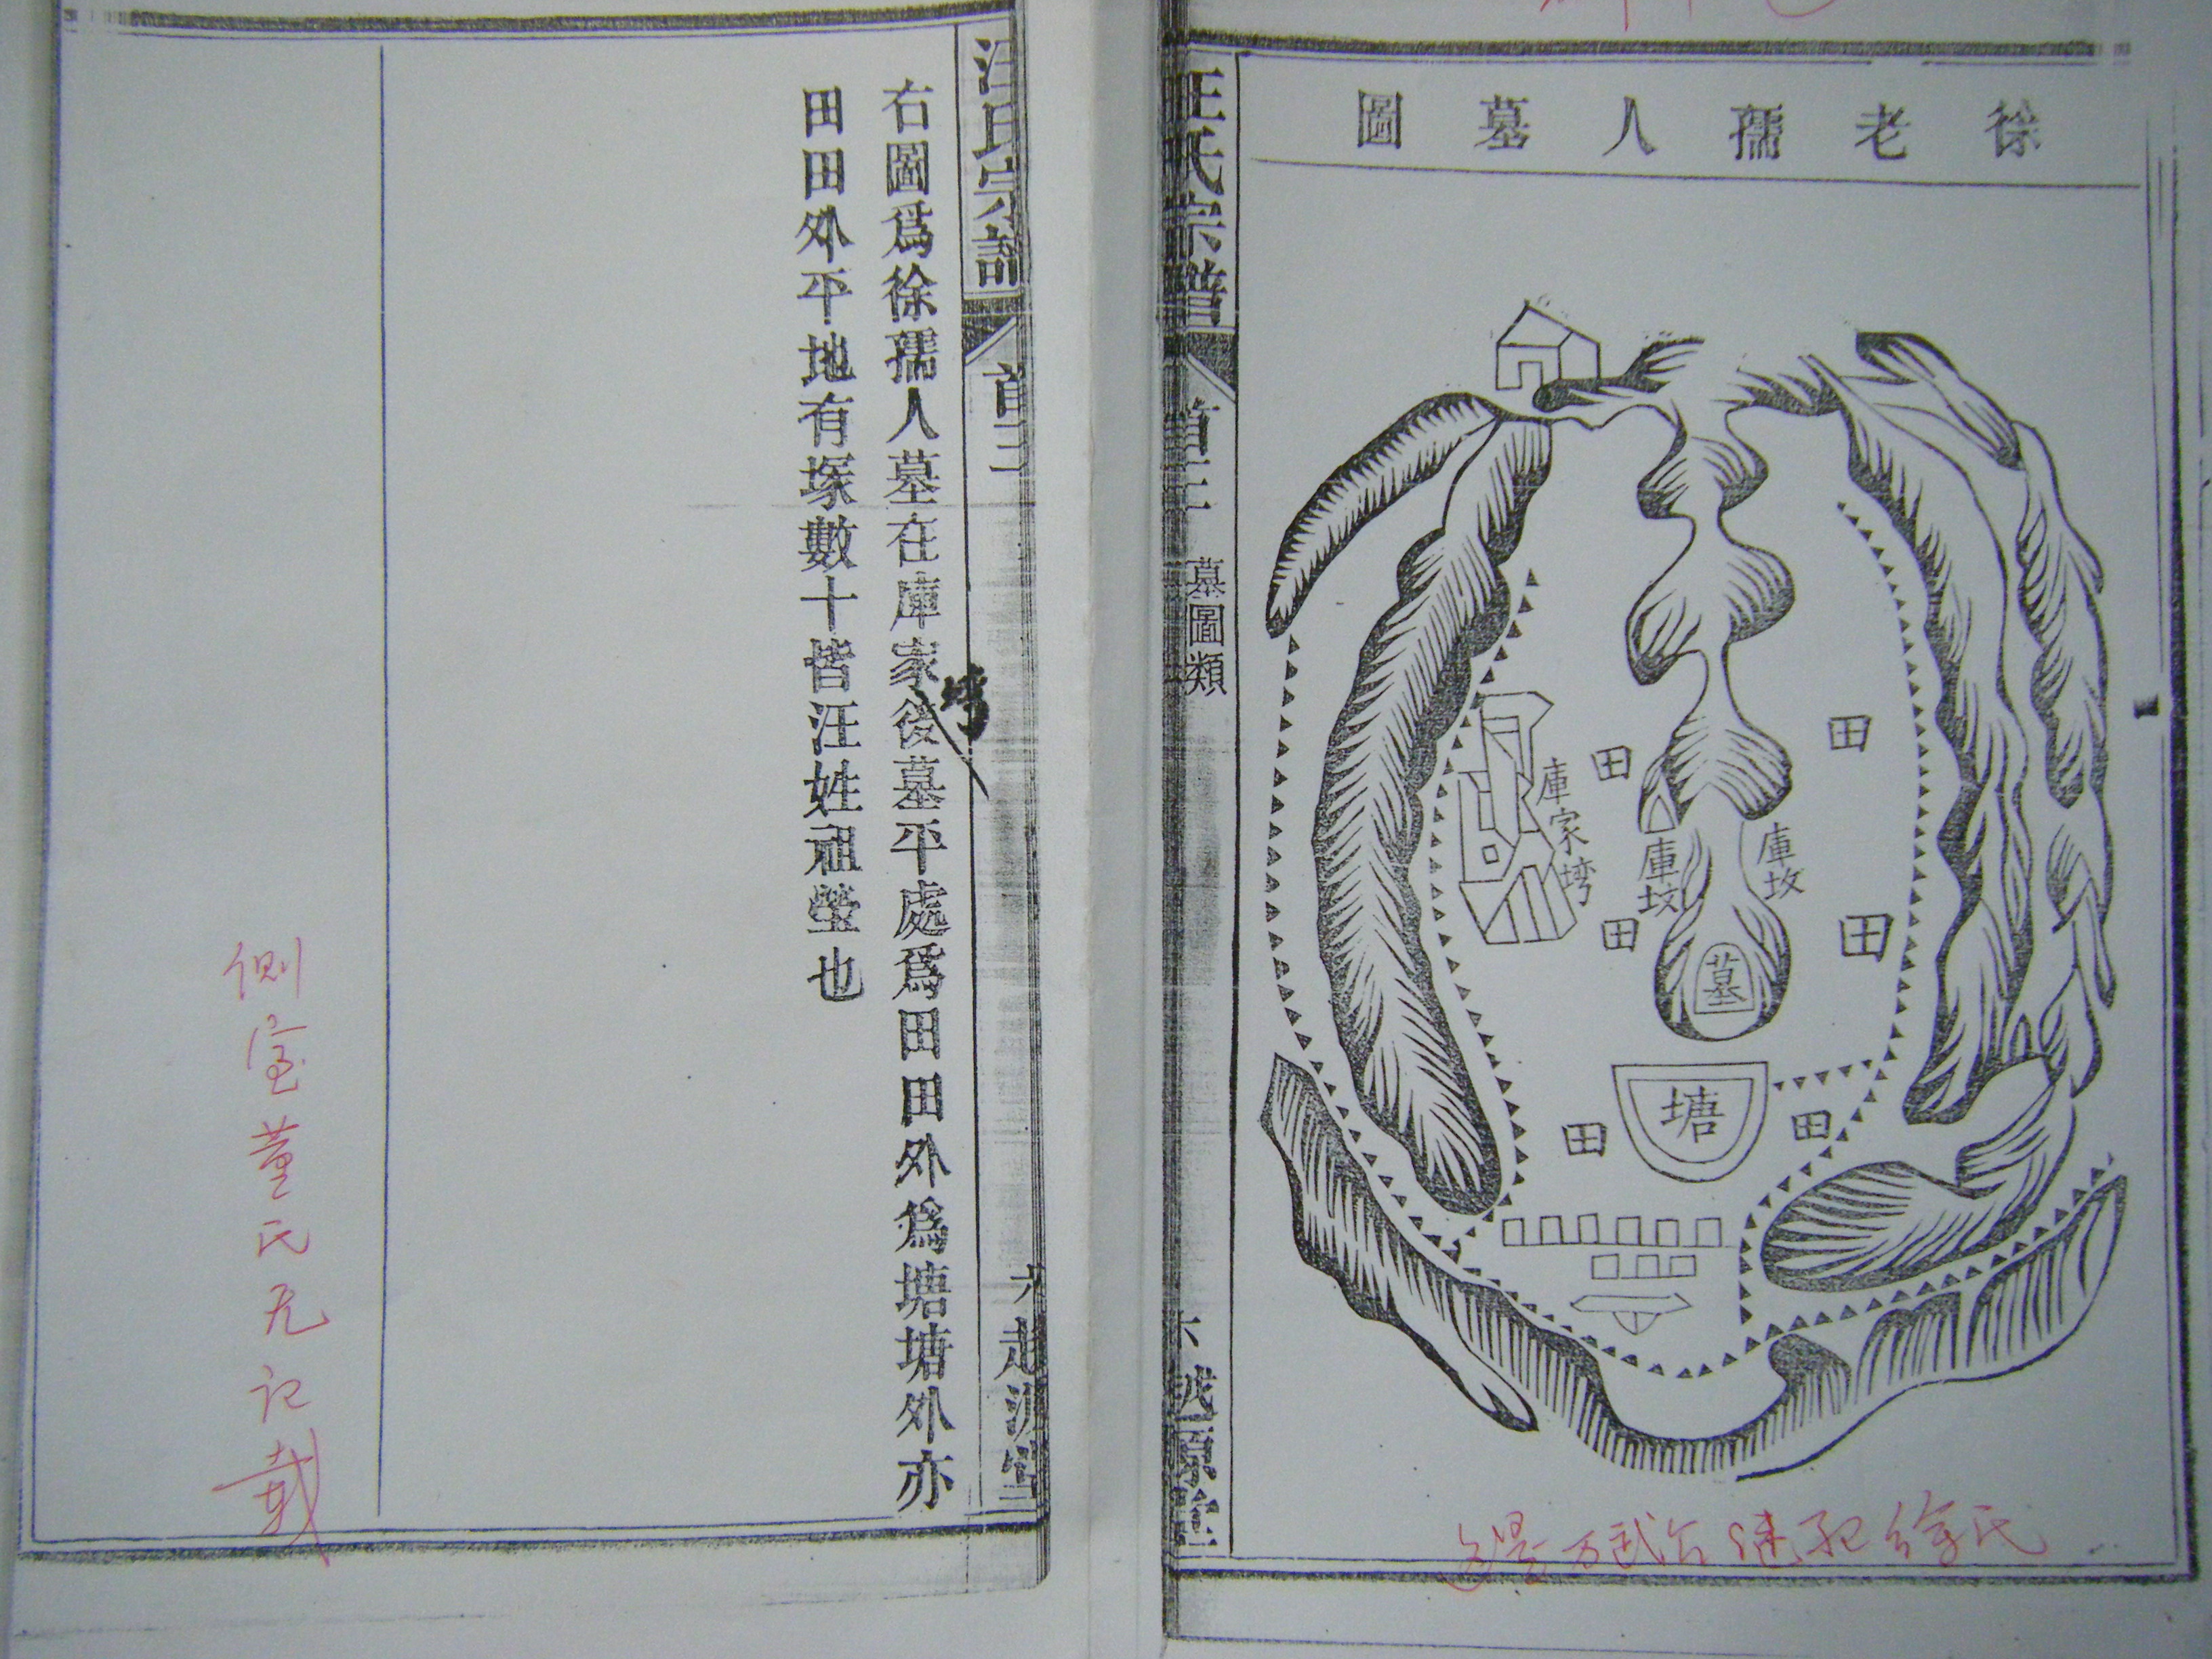 徐老孺人墓圖
田
田
庫家塆
庫坟
庫坟
田
田
墓
塘
田
田
这是万武公继配徐氏
汪氏宗譜
首三
墓圖類
六
汪氏宗譜
首三
六
右圖爲徐孺人墓在庫家後墓平處爲田田外爲塘塘外亦
塆
田田外平地有塚數十皆汪姓祖塋也
侧室董氏无记载